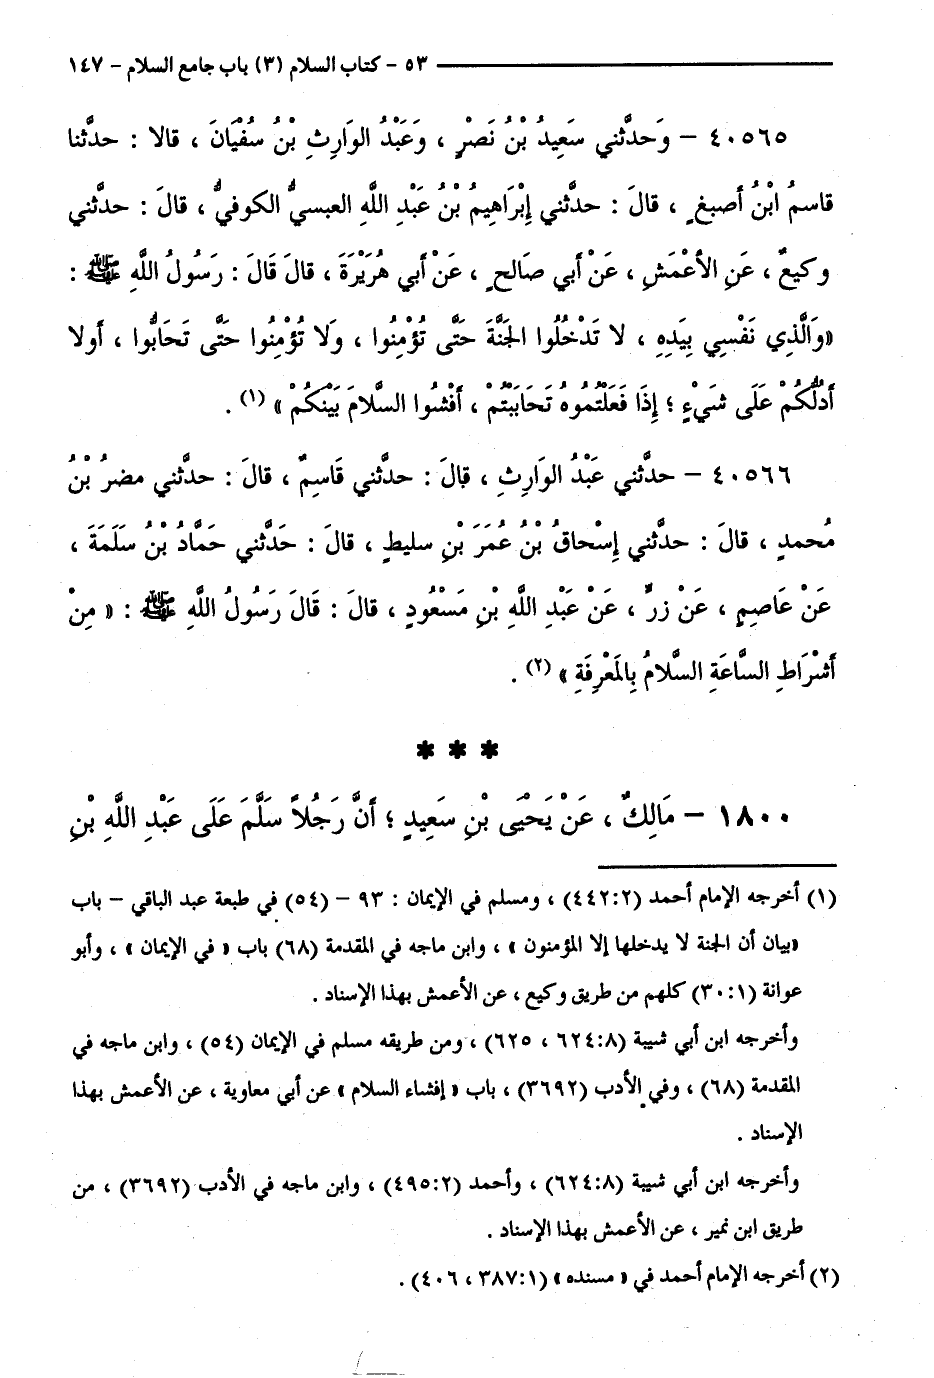 ٥٣ - كتاب السلام (٣) باب جامع السلام - ١٤٧
٤٠٥٦٥ - وَحدثَّني سَعِيدُ بْنُ نَصْرٍ ، وَعَبْدُ الوَارِثِ بْنُ سفْيَانَ ، قالا : حدثَّنا
قاسمُ ابْنُ أصبغٍ ، قالَ : حدثَّني إِبْرَاهِيمُ بْنُ عَبْدِ اللَّهِ العبسيُّ الكوفيُّ ، قالَ : حدثَّني
وكيعٌ ، عَنِ الأعْمَشِ ، عَنْ أبي صَالحٍ ، عَنْ أبي هُرَيْرَةَ ، قالَ قَالَ : رَسُولُ اللَّهِ ﷺ :
«وَالَّذِي نَفْسِي بِيَدِهِ ، لا تَدْخُلُوا الجَنَّةَ حَتَّى تُؤْمِنُوا ، وَلا تُؤْمِنُوا حَتَّى تَحَابُّوا ، أولا
أدُلُّكُمْ عَلَى شَيْءٍ ؛ إِذَا فَعَلْتُمُوهُ تَحَابَبْتُمْ ، أفْشُوا السَّلامَ بَيْنَكُمْ » (١) .
٤٠٥٦٦ - حدثَّني عَبْدُ الوَارِثِ ، قالَ : حدثَّني قَاسِمٌ ، قالَ : حدثَّني مضرُ بْنُ
مُحمدٍ ، قالَ : حدثَّني إِسْحاقُ بْنُ عُمَرَ بْنِ سليطٍ ، قالَ : حَدَّثَني حَمَّادُ بْنُ سَلَمَةَ ،
عَنْ عَاصِمٍ ، عَنْ زرٍّ ، عَنْ عَبْدِ اللَّهِ بْنِ مَسْعُودٍ ، قالَ : قَالَ رَسُولُ اللَّهِ ﷺ : « مِنْ
أشْرَاطِ السَّاعَةِ السَّلامُ بِالمَعْرِفَةِ » (٢) .
* * *
١٨٠٠ - مَالِكٌ ، عَنْ يَحْيَى بْنِ سَعِيدٍ ؛ أنَّ رَجُلاً سَلَّمَ عَلَى عَبْدِ اللَّهِ بْنِ
(١) أخرجه الإمام أحمد (٤٤٢:٢) ، ومسلم في الإيمان : ٩٣ - (٥٤) في طبعة عبد الباقي - باب
«بيان أن الجنة لا يدخلها إلا المؤمنون » ، وابن ماجه في المقدمة (٦٨) باب « في الإيمان » ، وأبو
عوانة (٣٠:١) كلهم من طريق وكيع ، عن الأعمش بهذا الإسناد .
وأخرجه ابن أبي شيبة (٦٢٤:٨ ، ٦٢٥) ، ومن طريقه مسلم في الإيمان (٥٤) ، وابن ماجه في
المقدمة (٦٨) ، وفي الأدب (٣٦٩٢) ، باب « إفشاء السلام » عن أبي معاوية ، عن الأعمش بهذا
الإسناد .
وأخرجه ابن أبي شيبة (٦٢٤:٨) ، وأحمد (٤٩٥:٢) ، وابن ماجه في الأدب (٣٦٩٢) ، من
طريق ابن نمير ، عن الأعمش بهذا الإسناد .
(٢) أخرجه الإمام أحمد في « مسنده » (٣٨٧:١ ، ٤٠٦) .